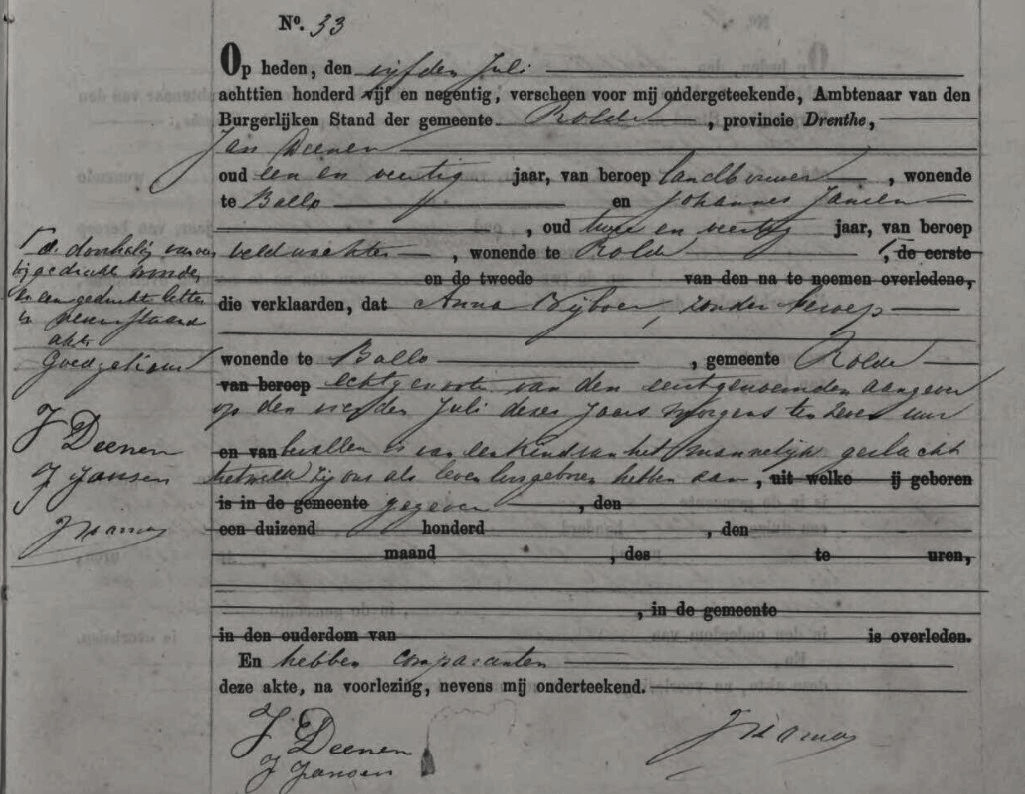 No. 33
Op heden, den vijfden Juli
achttien honderd vijf en negentig, verscheen voor mij ondergeteekende, Ambtenaar van den
Burgerlijken Stand der gemeente Rolde, provincie Drenthe,
Jan Deenen
oud een en veertig jaar, van beroep landbouwer, wonende
te Ballo en Johannes Jansen
, oud twee en veertig jaar, van beroep
veldwachter, wonende te Rolde, de eerste
en de tweede van den na te noemen overledene,
die verklaarden, dat Anna zonder beroep
wonende te Ballo, gemeente Rolde
van beroep echtgenoote van den eerstgenoemden aangever
op den vierden Juli dezes jaars morgens ten zeven uur
en van bevallen is van een kind van het mannelijk geslacht
hetwelk zij ons als levenloos geboren hebben aan, uit welke ij geboren
is in de gemeente gegeven, den
een duizend honderd, den
maand, des te uren,
, in de gemeente
in den ouderdom van is overleden.
En hebben comparanten
deze akte, na voorlezing, nevens mij onderteekend.
J Deenen
J Jansen
de doorhaling van
gedrukte woorden
en een gedrukte letter
in nevenstaande
akte
Goedgekeurd
J Deenen
J Jansen